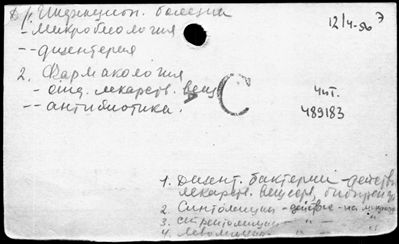 Инфекцион. болезни
12/4-56 Э
- микробиология
-- дизентерия
2. Фармакология
- отд. лекарств. вещ
-- антибиотика.
чит.
489183
С
1. Дизент. бактерии - действ
лекарств. веществ,
2. Синтомицин - действие - на микроб
3. стрептомицин " "
4. Левомицетин " "